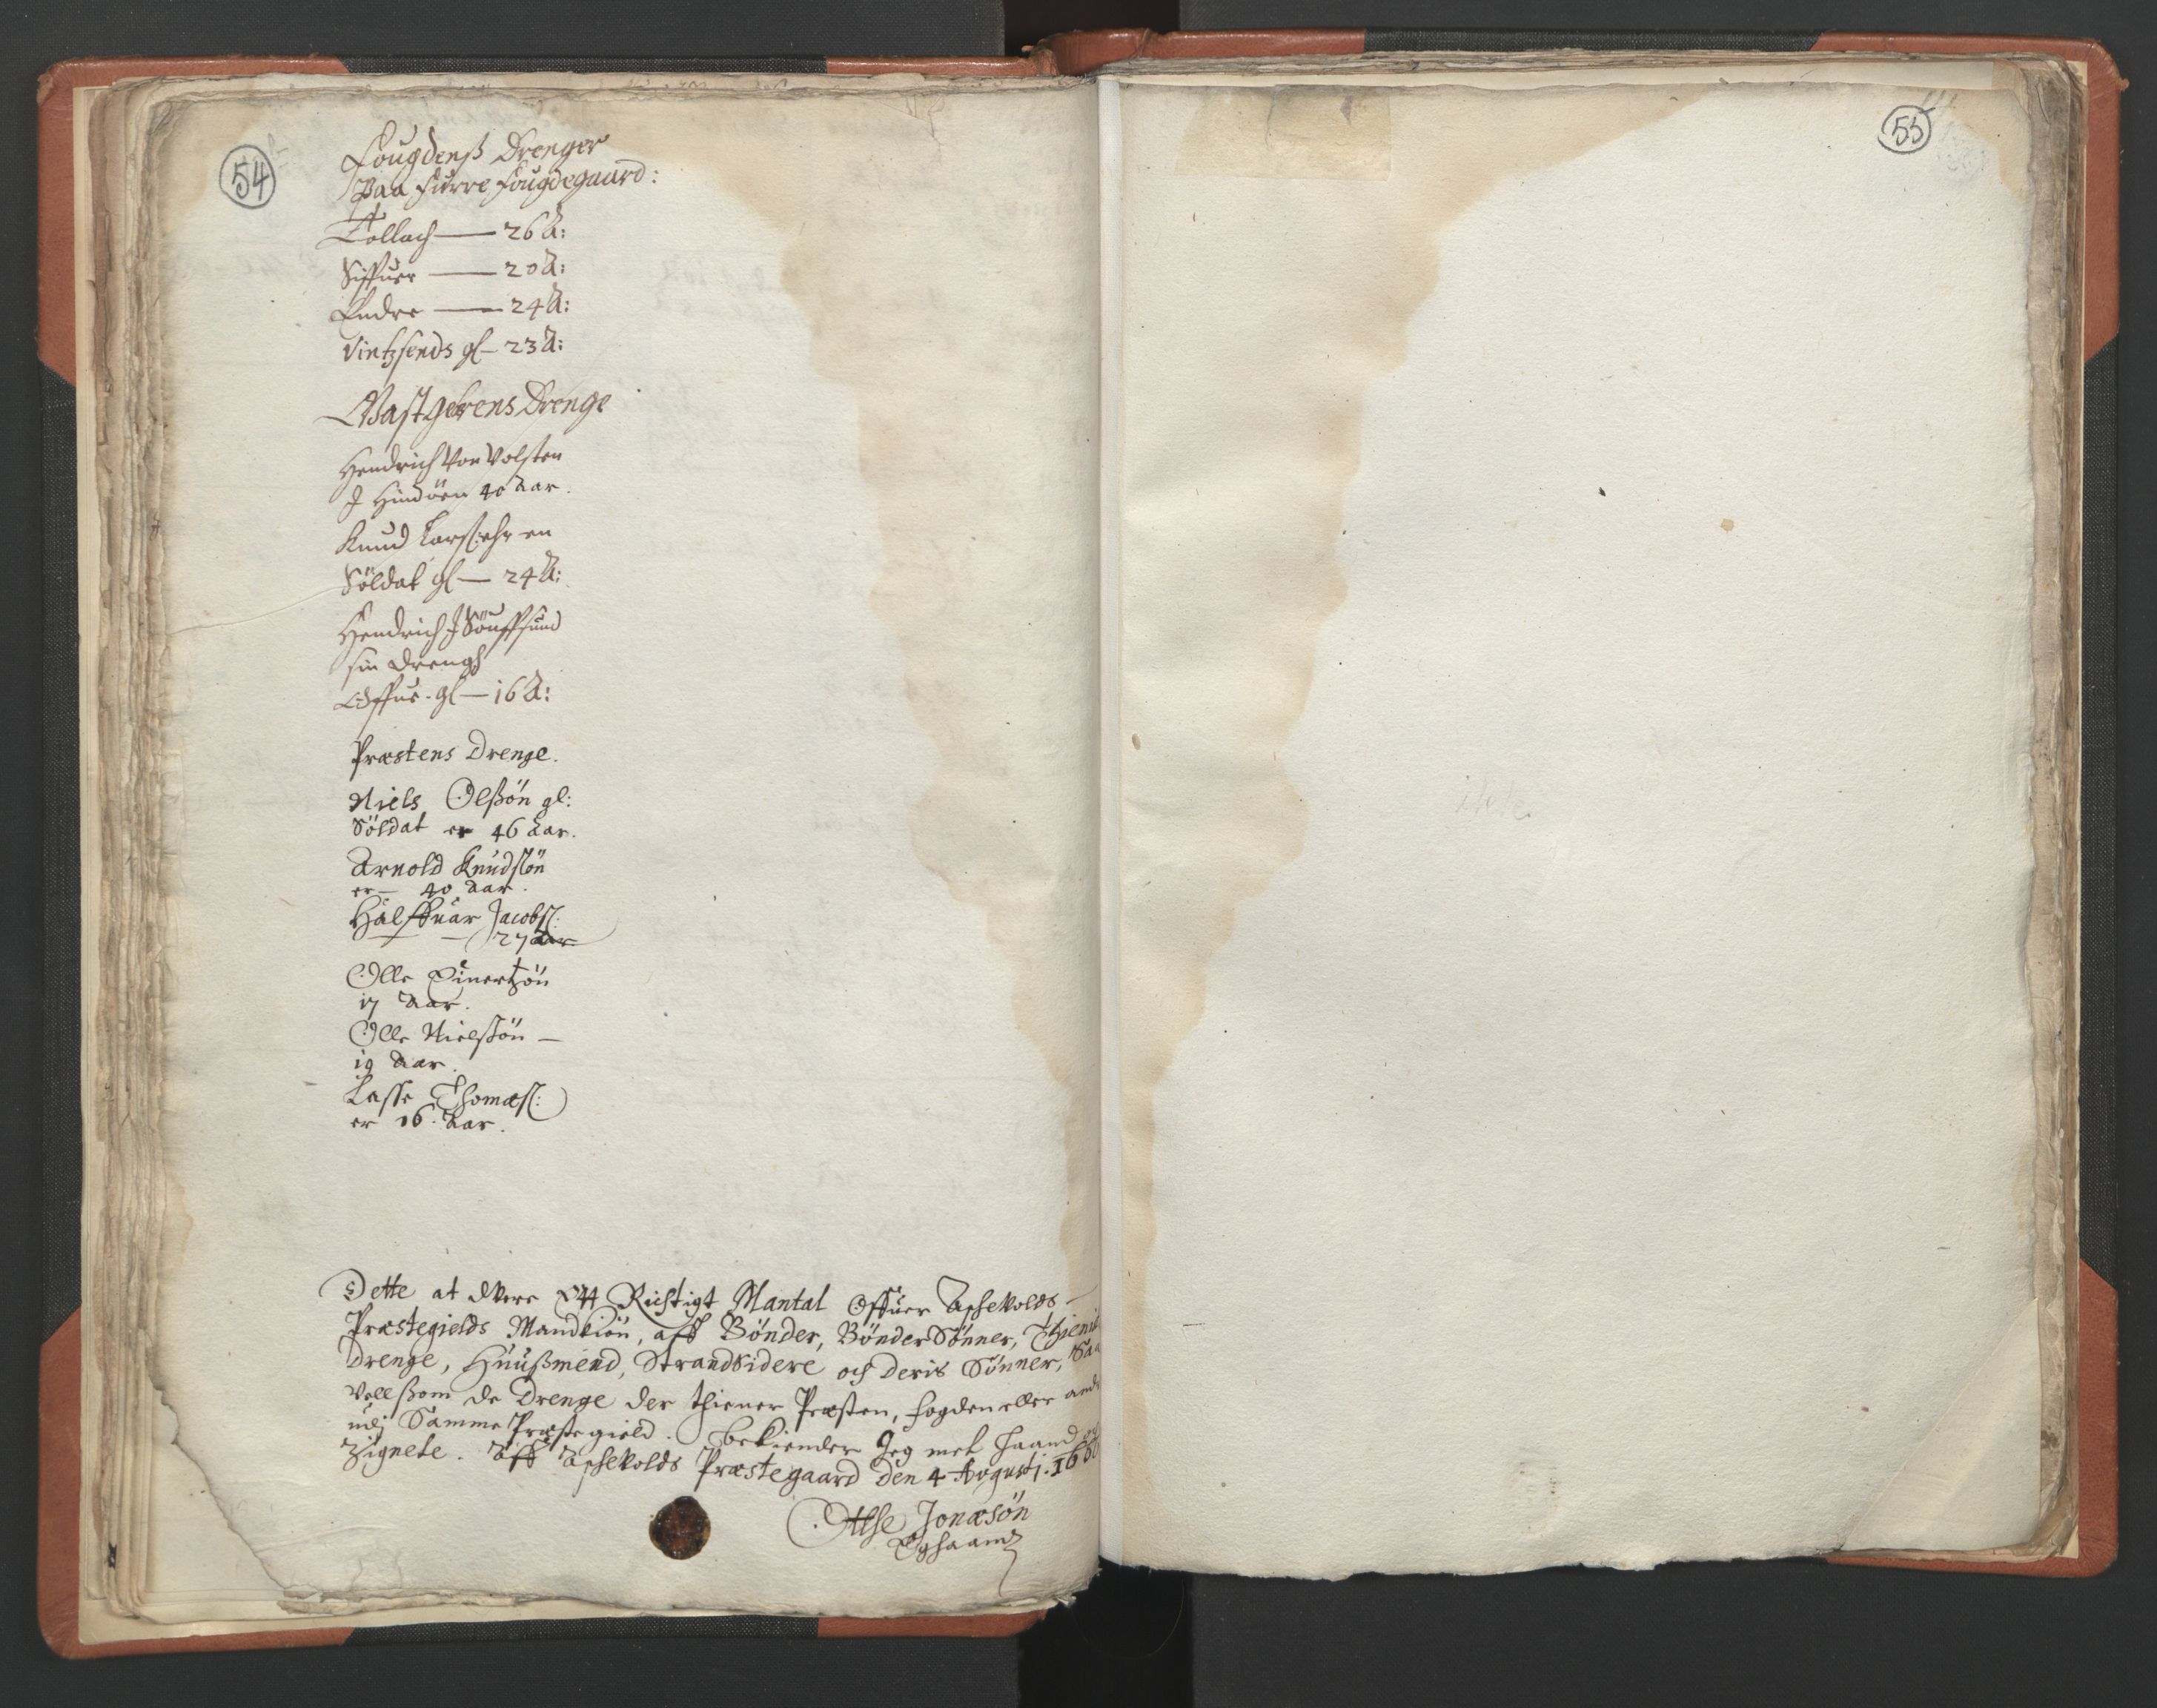 54
Fougdenß Drenger
Paa Furre Fougdegaard:
Tollach — 26 A:
Siffuer — 20 A:
Endre — 24 A:
Vintzsends gl — 23 A:
Gastgeerens Drenge
Hendrich Von Volsten
J Hindöen 40 Aar.
Knud Larß: ehr en
Söldat gl — 24 A:
Hendrich J
sin Drengh
gl — 16 A:
Præstens Drenge.
Niels Olßön gl:
Söldat er 46 aar.
Arnold Knudsön
er — 40 aar.
Halffuar Jacobs:
— 27 Aar
Olle Einertzön
17 Aar.
Olle Nielßön —
19 Aar.
Lasse Thomæs:
er 16. Aar.
Dette at Were Ett Richtigt Mantal Offuer Aschevolds
Præstegields Mandkiön, aff Bönder, Bönder Sönner, Thienis
Drenge, Huußmend, Strandsidere och Deris Sönner, Saa
Vell ßom de Drenge der thiener Præsten, Fogden eller and
udj Samme Præstegield. bekiender Jeg met Haand och
Zignete. Aff Aschevolds Præstegaard den 4 Augustj. 166
Atle Jonæsön
Eghaand
55